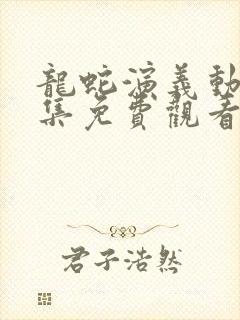 龍蛇演義動
集免費觀看
君子浩然